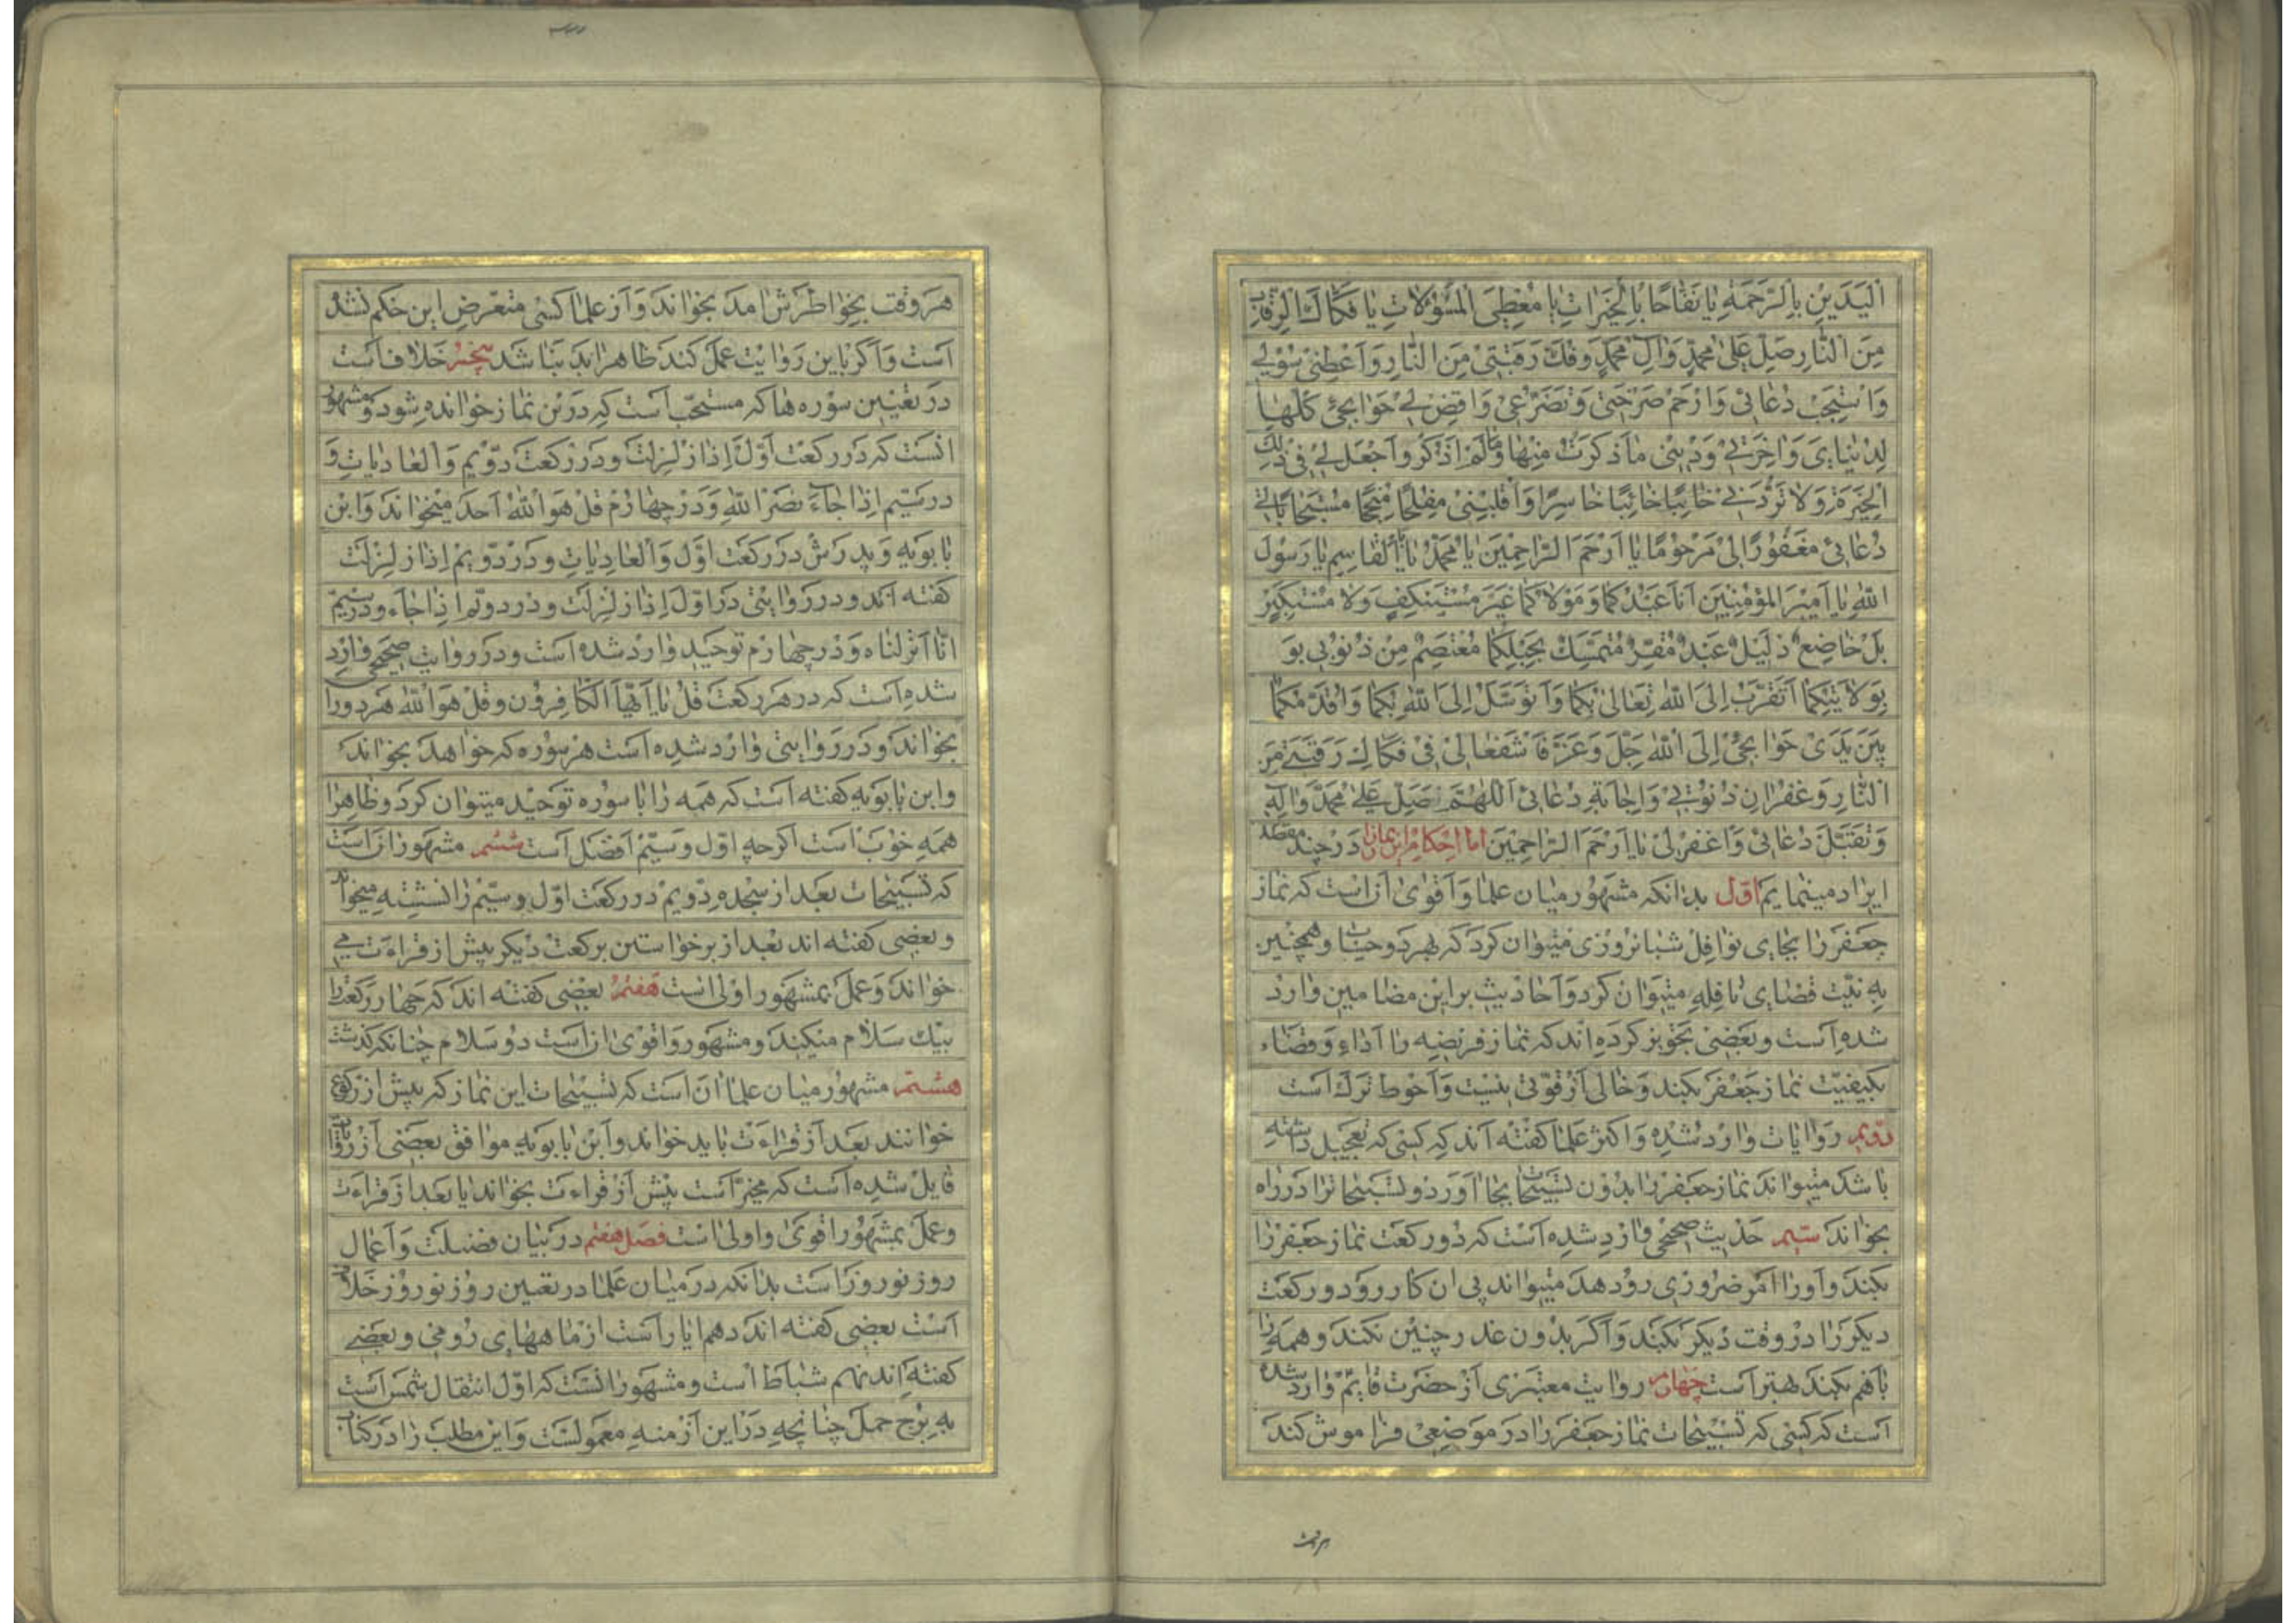 الیدین بالرحمة یا نفاحا بالخیرات یا معطی المسؤلات یا فکاک الرقاب
من النار صل علی محمد وال محمد وفک رقبتی من النار واعطنی سؤلی
واستجب دعائی وارحم صرختی وتضرعی واقض لی حوائجی کلها
لدنیای واخرتی ودینی ما ذکرت منها وما لم اذکر واجعل لی فی ذلک
الخیرة ولا تردنی خائبا خاسرا واقلبنی مفلحا منجحا مستجابا لی
دعائی مغفورا لی مرحوما یا ارحم الراحمین یا محمد یا ابا القاسم یا رسول
الله یا امیر المؤمنین انا عبدکما ومولاکما غیر مستنکف ولا مستکبر
بل خاضع ذلیل عبد مقر متمسک بحبلکما معتصم من ذنوبی بو
بولایتکما اتقرب الی الله تعالی بکما واتوسل الی الله بکما واقدمکما
بین یدی حوائجی الی الله جل وعز فاشفعا لی فی فکاک رقبتی من
النار وغفران ذنوبی واجابة دعائی اللهم صل علی محمد واله
وتقبل دعائی واغفر لی یا ارحم الراحمین اما احکام این نماز را در چند مقصد
ایراد مینمایم اول بدانکه مشهور میان علما واقوی آن است که نماز
جعفر را بجای نوافل شبانروزی میتوان کرد که بهر دو حساب وهمچنین
به نیت قضای نافله میتوان کرد واحادیث بر این مضامین وارد
شده است وبعضی تجویز کرده اند که نماز فریضه را اداء وقضاء
بکیفیت نماز جعفر بکند وخالی از قوتی نیست واحوط ترک است
دویم روایات وارد شده واکثر علما گفته اند که کسی که تعجیل داشته
باشد میتواند نماز جعفر را بدون تسبیحات بجا آورد وتسبیحات را در راه
بخواند سیم حدیث صحیحی وارد شده است که دو رکعت نماز جعفر را
بکند واو را امر ضروری رو دهد میتواند پی ان کار رود ودو رکعت
دیگر را در وقت دیگر بکند واگر بدون عذر چنین نکند وهمه را
باهم بکند بهتر است چهارم روایت معتبری از حضرت قایم وارد شده
است که کسی که تسبیحات نماز جعفر را در موضعی فراموش کند
هر وقت
هر وقت بخواطرش امد بخواند واز علما کسی متعرض این حکم نشده
است واگر باین روایت عمل کند ظاهرا بد نباشد پنجم خلاف است
در تعیین سوره ها که مستحب است که در این نماز خوانده شود ومشهور
انست که در رکعت اول اذا زلزلت ودر رکعت دویم والعادیات و
در سیم اذا جاء نصر الله ودر چهارم قل هو الله احد میخواند وابن
بابویه وپدرش در رکعت اول والعادیات ودر دویم اذا زلزلت
گفته اند ودر روایتی در اول اذا زلزلت ودر دویم اذا جاء ودر سیم
انا انزلناه ودر چهارم توحید وارد شده است ودر روایت صحیحی وارد
شده است که در هر رکعت قل یا ایها الکافرون وقل هو الله هر دو را
بخواند ودر روایتی وارد شده است هر سوره که خواهد بخواند
وابن بابویه گفته است که همه را با سوره توحید میتوان کرد وظاهرا
همه خوب است اگرچه اول وسیم افضل است ششم مشهور ان است
که تسبیحات بعد از سجده دویم در رکعت اول وسیم را نشسته میخواند
وبعضی گفته اند بعد از برخواستن برکعت دیگر پیش از قراءت می
خواند وعمل بمشهور اولی است هفتم بعضی گفته اند که چهار رکعت را
بیک سلام میکند ومشهور واقوی ان است دو سلام چنانکه گذشت
هشتم مشهور میان علما ان است که تسبیحات این نماز که پیش از رکوع
خوانند بعد از قراءت باید خواند وابن بابویه موافق بعضی از روایات
قایل شده است که مخیر است پیش از قراءت بخواند یا بعد از قراءت
وعمل بمشهور اقوی واولی است فصل هفتم در بیان فضیلت واعمال
روز نوروز است بدانکه در میان علما در تعیین روز نوروز خلاف
است بعضی گفته اند دهم ایار است از ماههای رومی وبعضی
گفته اند نهم شباط است ومشهور انست که اول انتقال شمس است
به برج حمل چنانچه در این ازمنه معمولست واین مطلب را در کتاب